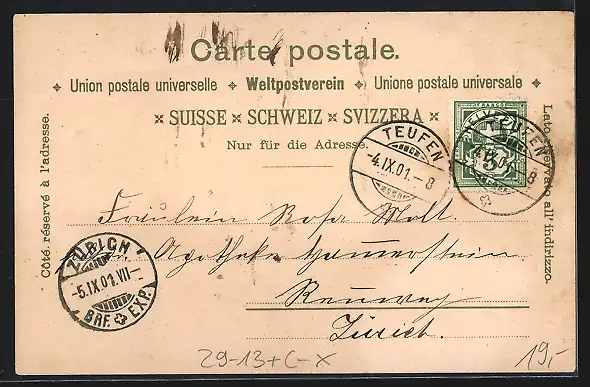 Carte postale.
✦ Union postale universelle ✦ Weltpostverein ✦ Unione postale universale ✦
SUISSE × SCHWEIZ × SVIZZERA ×
Nur für die Adresse.
Côté réservé à l'adresse.
Lato all' indirizzo.
FRANCO
TEUFEN
-4.IX.01.-8
TEUFEN
-8
Fräulein Rosa Molt.
Apotheke Hammerstein
Rennweg
Zürich.
ZÜRICH
-5.IX.01.VII-
BRF. EXP.
29-13+C-X
19,-